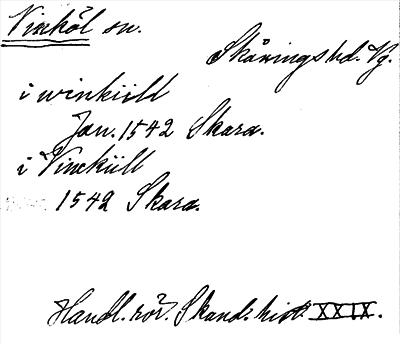 Vinköl sn.
Skånings hd. Vg.
i winkiill
Jan. 1542 Skara.
i Vinckiill
1542 Skara.
Handl. rör. Skand. hist. XXIX.